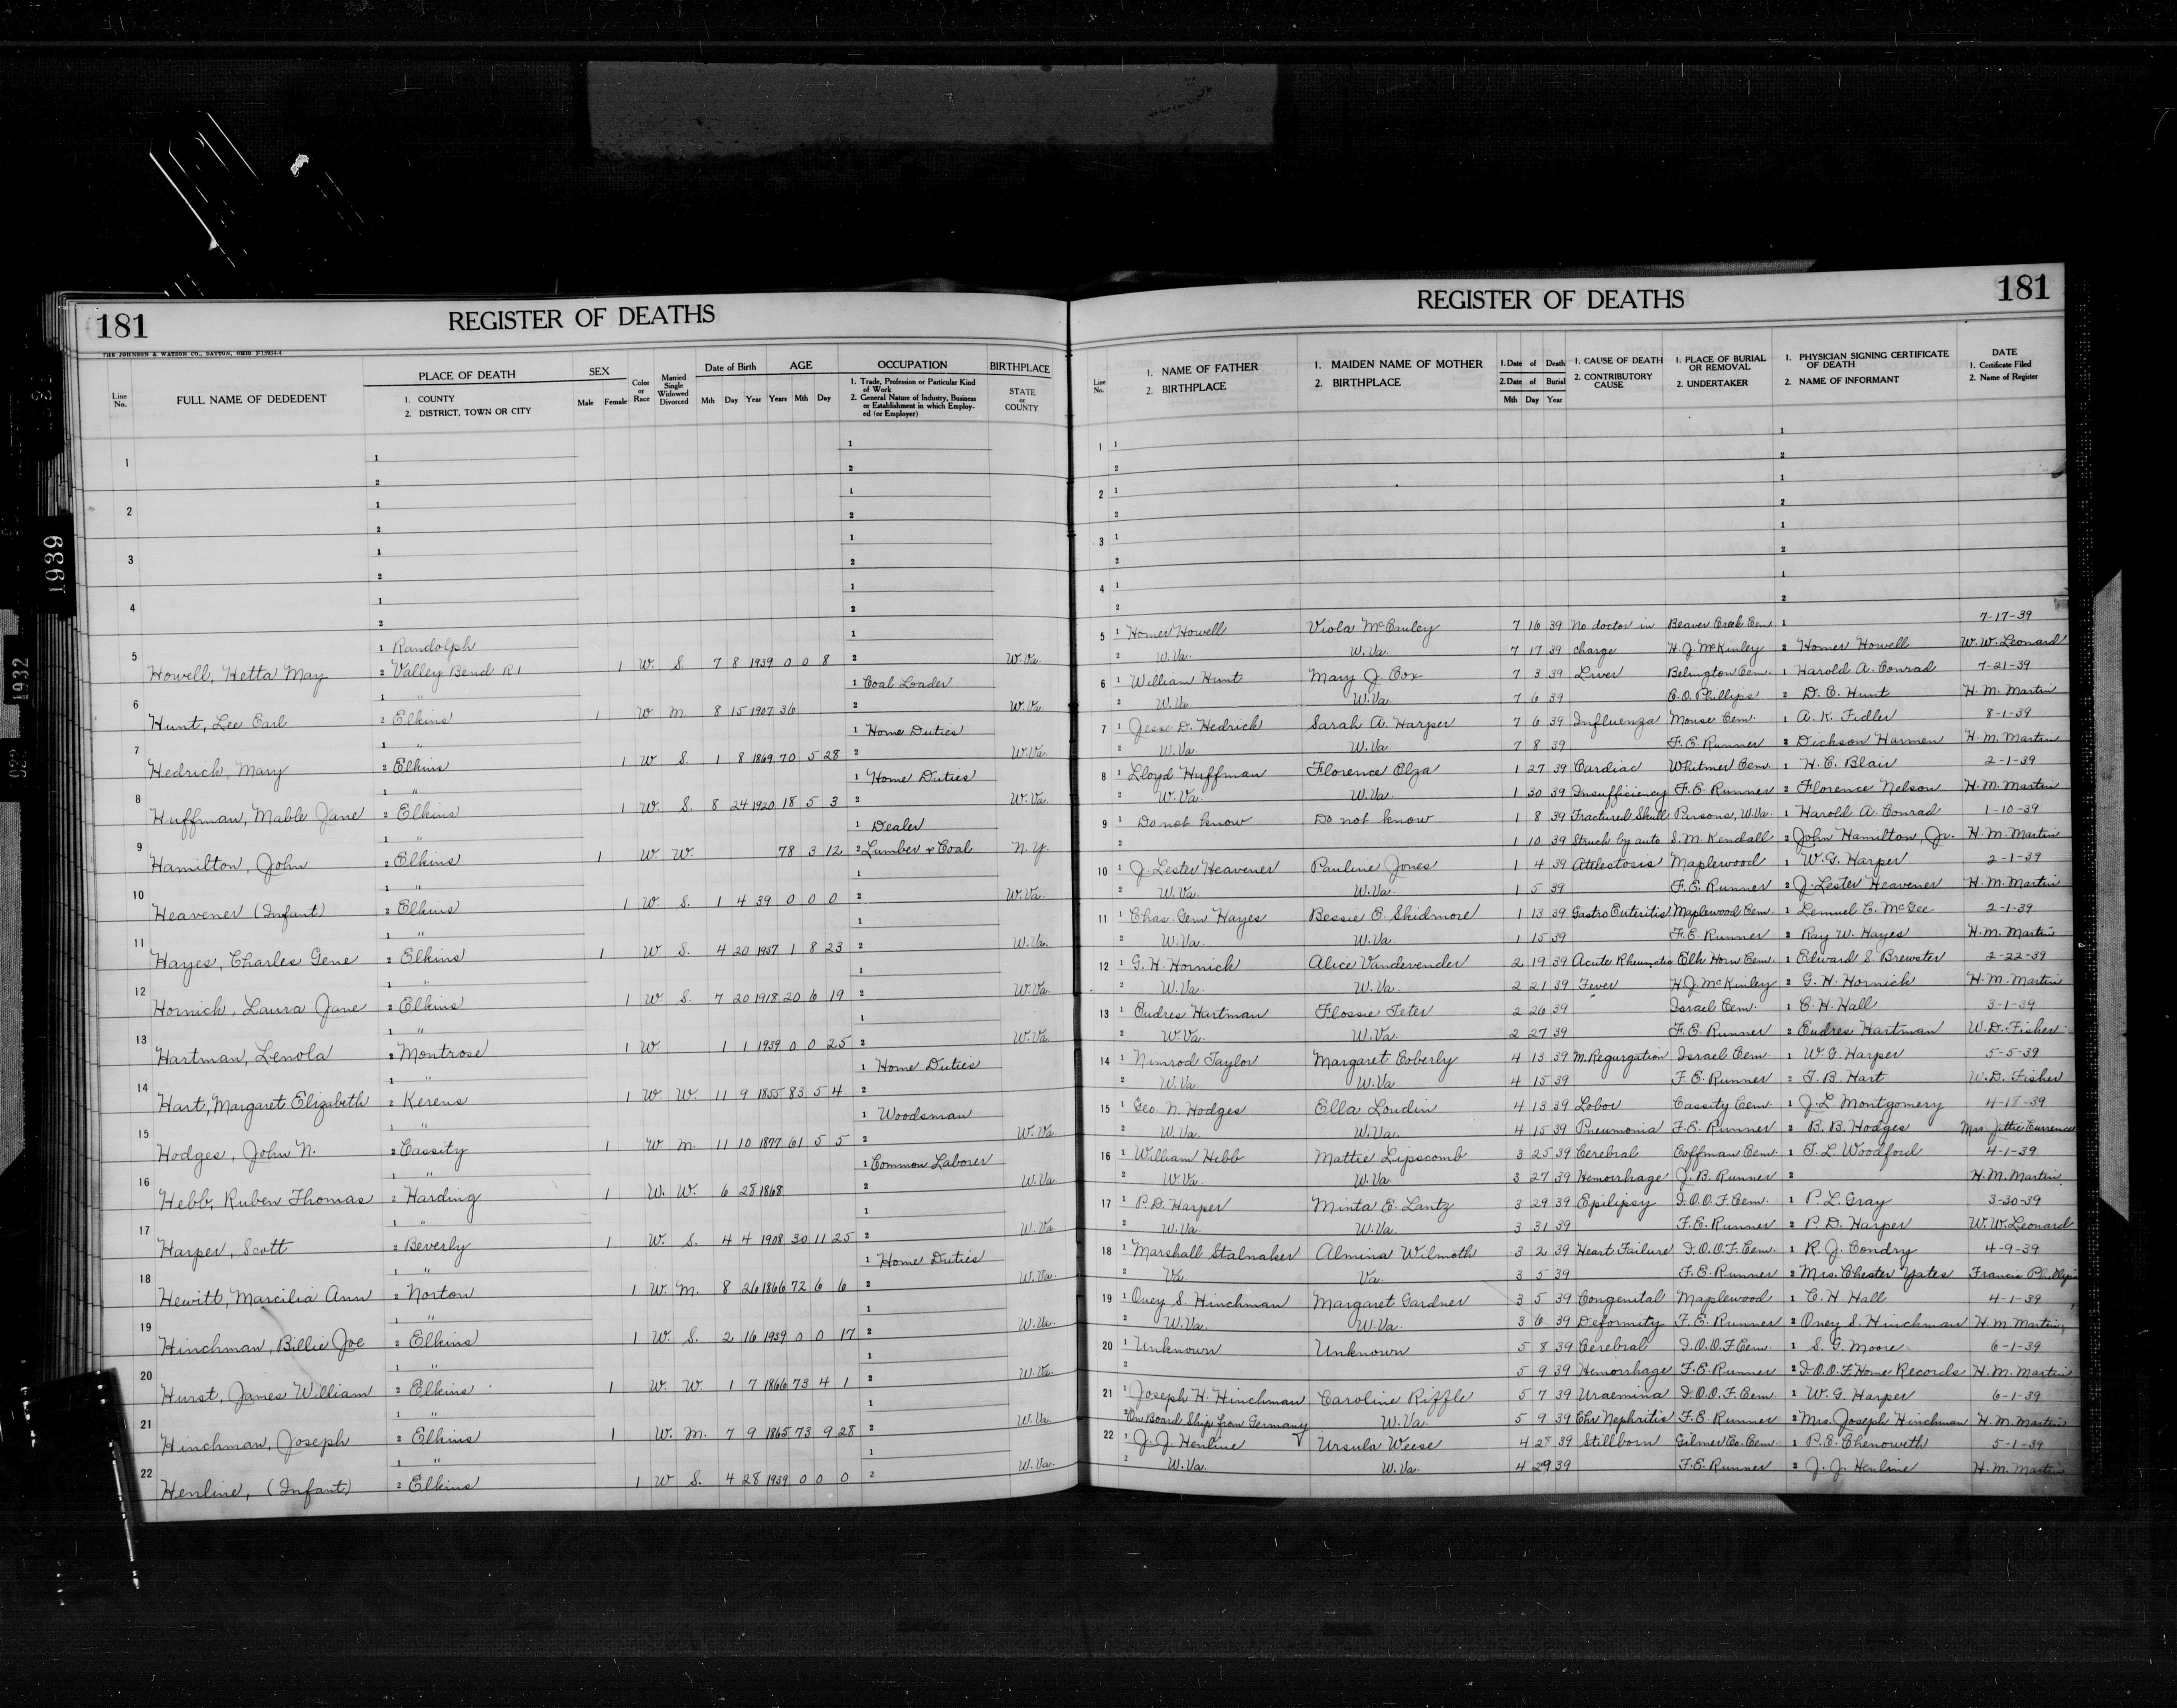 181
REGISTER OF DEATHS
THE JOHNSON & WATSON CO., DAYTON, OHIO
Line No.
FULL NAME OF DEDEDENT
PLACE OF DEATH
1. COUNTY
2. DISTRICT, TOWN OR CITY
SEX
Male Female
Color or Race
Married Single Widowed Divorced
Date of Birth
Mth Day Year
AGE
Years Mth Day
OCCUPATION
1. Trade, Profession or Particular Kind of Work
2. General Nature of Industry, Business or Establishment in which Employed (or Employer)
BIRTHPLACE
STATE or COUNTY
1
2
3
4
1 Randolph
5 Howell, Hetta May 2 Valley Bend R1 1 W. S. 7 8 1939 0 0 8 W.Va.
1 " 1 Coal Loader
6 Hunt, Lee Earl 2 Elkins 1 W M. 8 15 1907 36 2 W.Va.
1 " 1 Home Duties
7 Hedrick, Mary 2 Elkins 1 W S. 1 8 1869 70 5 28 2 W.Va.
1 " 1 Home Duties
8 Huffman, Mable Jane 2 Elkins 1 W. S. 8 24 1920 18 5 3 2 W.Va.
1 " 1 Dealer
9 Hamilton, John 2 Elkins 1 W. W. 78 3 12 2 Lumber & Coal N.Y.
1 " 1
10 Heavener (Infant) 2 Elkins 1 W. S. 1 4 39 0 0 0 2 W.Va.
1 " 1
11 Hayes, Charles Gene 2 Elkins 1 W S. 4 20 1937 1 8 23 2 W.Va.
1 " 1
12 Hornick, Laura Jane 2 Elkins 1 W S. 7 20 1918 20 6 19 2 W.Va.
1 " 1
13 Hartman, Lenola 2 Montrose 1 W. 1 1 1939 0 0 25 2 W.Va.
1 " 1 Home Duties
14 Hart, Margaret Elizabeth 2 Kerens 1 W. W. 11 9 1855 83 5 4 2
1 " 1 Woodsman
15 Hodges, John N. 2 Cassity 1 W. M. 11 10 1877 61 5 5 2 W.Va
1 " 1 Common Laborer
16 Hebb, Ruben Thomas 2 Harding 1 W. W. 6 28 1868 2 W.Va
1 " 1
17 Harper, Scott 2 Beverly 1 W. S. 4 4 1908 30 11 25 2 W.Va
1 " 1 Home Duties
18 Hewitt, Marcilia Ann 2 Norton 1 W. M. 8 26 1866 72 6 6 2 W.Va.
1 " 1
19 Hinchman, Billie Joe 2 Elkins 1 W. S. 2 16 1939 0 0 17 2 W.Va.
1 " 1
20 Hurst, James William 2 Elkins 1 W. W. 1 7 1866 73 4 1 2 W.Va.
1 " 1
21 Hinchman, Joseph 2 Elkins 1 W. M. 7 9 1865 73 9 28 2 W.Va.
1 " 1
22 Henline, (Infant) 2 Elkins 1 W S. 4 28 1939 0 0 0 2 W.Va.
REGISTER OF DEATHS
181
Line No.
1. NAME OF FATHER
2. BIRTHPLACE
1. MAIDEN NAME OF MOTHER
2. BIRTHPLACE
1. Date of Death
2. Date of Burial
Mth Day Year
1. CAUSE OF DEATH
2. CONTRIBUTORY CAUSE
1. PLACE OF BURIAL OR REMOVAL
2. UNDERTAKER
1. PHYSICIAN SIGNING CERTIFICATE OF DEATH
2. NAME OF INFORMANT
DATE
1. Certificate Filed
2. Name of Register
1
2
3
4
5 1 Homer Howell Viola McCauley 7 16 39 No doctor in Beaver Creek Cem. 1 7-17-39
2 W.Va. W.Va. 7 17 39 charge H.J. McKinley 2 Homer Howell W.W. Leonard
6 1 William Hunt Mary J. Cox 7 3 39 Liver Belington Cem. 1 Harold A. Conrad 7-21-39
2 W.Va. W.Va. 7 6 39 C.O. Phillips 2 D.C. Hunt H.M. Martin
7 1 Jesse D. Hedrick Sarah A. Harper 7 6 39 Influenza Mouse Cem. 1 A.K. Fidler 8-1-39
2 W.Va. W.Va 7 8 39 F.E. Runner 2 Dickson Harmen H.M. Martin
8 1 Lloyd Huffman Florence Elza 1 27 39 Cardiac Whitmer Cem. 1 H.C. Blair 2-1-39
2 W.Va. W.Va. 1 30 39 Insufficiency F.E. Runner 2 Florence Nelson H.M. Martin
9 1 Do not know Do not know 1 8 39 Fractured Skull Parsons, W.Va. 1 Harold A. Conrad 1-10-39
2 1 10 39 Struck by auto S.M. Kendall 2 John Hamilton, Jr. H.M. Martin
10 1 J. Lester Heavener Pauline Jones 1 4 39 Atelectosis Maplewood 1 W.G. Harper 2-1-39
2 W.Va. W.Va. 1 5 39 F.E. Runner 2 J. Lester Heavener H.M. Martin
11 1 Chas. Gem Hayes Bessie E. Skidmore 1 13 39 Gastro Enteritis Maplewood Cem. 1 Lemuel C. McGee 2-1-39
2 W.Va. W.Va. 1 15 39 F.E. Runner 2 Ray W. Hayes H.M. Martin
12 1 G.H. Hornick Alice Vandevender 2 19 39 Acute Rheumatic Elk Horn Cem. 1 Edward S Brewster 2-22-39
2 W.Va. W.Va. 2 21 39 Fever H.J. McKinley 2 G.H. Hornick H.M. Martin
13 1 Eudres Hartman Flossie Teter 2 26 39 Israel Cem. 1 C.H. Hall 3-1-39
2 W.Va. W.Va. 2 27 39 F.E. Runner 2 Eudres Hartman W.D. Fisher
14 1 Nimrod Taylor Margaret Coberly 4 13 39 M. Regurgation Israel Cem. 1 W.G. Harper 5-5-39
2 W.Va. W.Va 4 15 39 F.E. Runner 2 J.B. Hart W.D. Fisher
15 1 Geo. N. Hodges Ella Loudin 4 13 39 Lobor Cassity Cem. 1 J.L. Montgomery 4-18-39
2 W.Va. W.Va. 4 15 39 Pneumonia F.E. Runner 2 B.B. Hodges Mrs Currence
16 1 William Hebb Mattie Lipscomb 3 25 39 Cerebral Coffman Cem. 1 T.L. Woodford 4-1-39
2 W.Va. W.Va. 3 27 39 Hemorrhage J.B. Runner 2 H.M. Martin
17 1 P.D. Harper Minta E. Lantz 3 29 39 Epilipsy I.O.O.F. Cem. 1 P.L. Gray 3-30-39
2 W.Va. W.Va. 3 31 39 F.E. Runner 2 P.D. Harper W.W. Leonard
18 1 Marshall Stalnaker Almina Wilmoth 3 2 39 Heart Failure I.O.O.F. Cem. 1 R.J. Condry 4-9-39
2 Va. Va. 3 5 39 F.E. Runner 2 Mrs. Chester Yates Francis Phillips
19 1 Oney S. Hinchman Margaret Gardner 3 5 39 Congenital Maplewood 1 C.H. Hall 4-1-39
2 W.Va. W.Va. 3 6 39 Deformity F.E. Runner 2 Oney S. Hinchman H.M. Martin
20 1 Unknown Unknown 5 8 39 Cerebral I.O.O.F. Cem. 1 S.G. Moore 6-1-39
2 5 9 39 Hemorrhage F.E. Runner 2 I.O.O.F. Home Records H.M. Martin
21 1 Joseph H. Hinchman Caroline Riffle 5 7 39 Uraemina I.O.O.F. Cem. 1 W.G. Harper 6-1-39
2 On Board Ship from Germany W.Va. 5 9 39 Chr Nephritis F.E. Runner 2 Mrs. Joseph Hinchman H.M. Martin
22 1 J.J. Henline Ursula Weese 4 28 39 Stillborn Gilmer Co. Cem 1 P.E. Chenoweth 5-1-39
2 W.Va. W.Va. 4 29 39 F.E. Runner 2 J.J. Henline H.M. Martin
1939
1932